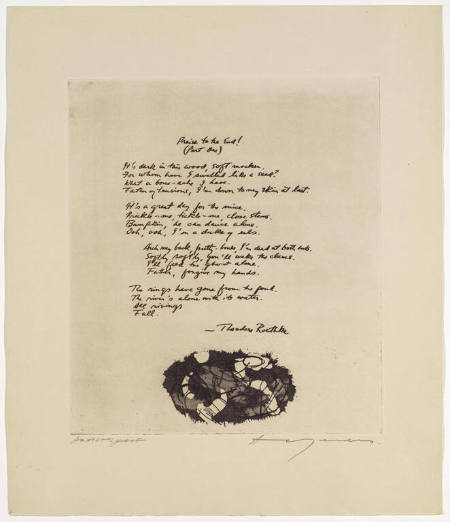 Praise to the End!
(Part One)
It's dark in this wood, soft mocker.
For whom have I swelled like a seed?
What a bone-ache I have.
Father of tensions, I'm down to my skin at last.
It's a great day for the mice.
Prickle-me, tickle-me, close stems.
Bumpkin, he can dance alone.
Ooh, ooh, I'm a duke of eels.
Arch my back, pretty-bones, I'm dead at both ends.
Softly, softly, you'll wake the clams.
I'll feed the ghost alone.
Father, forgive my hands.
The rings have gone from the pond.
The river's alone with its water.
All risings
Fall.
— Theodore Roethke
proof